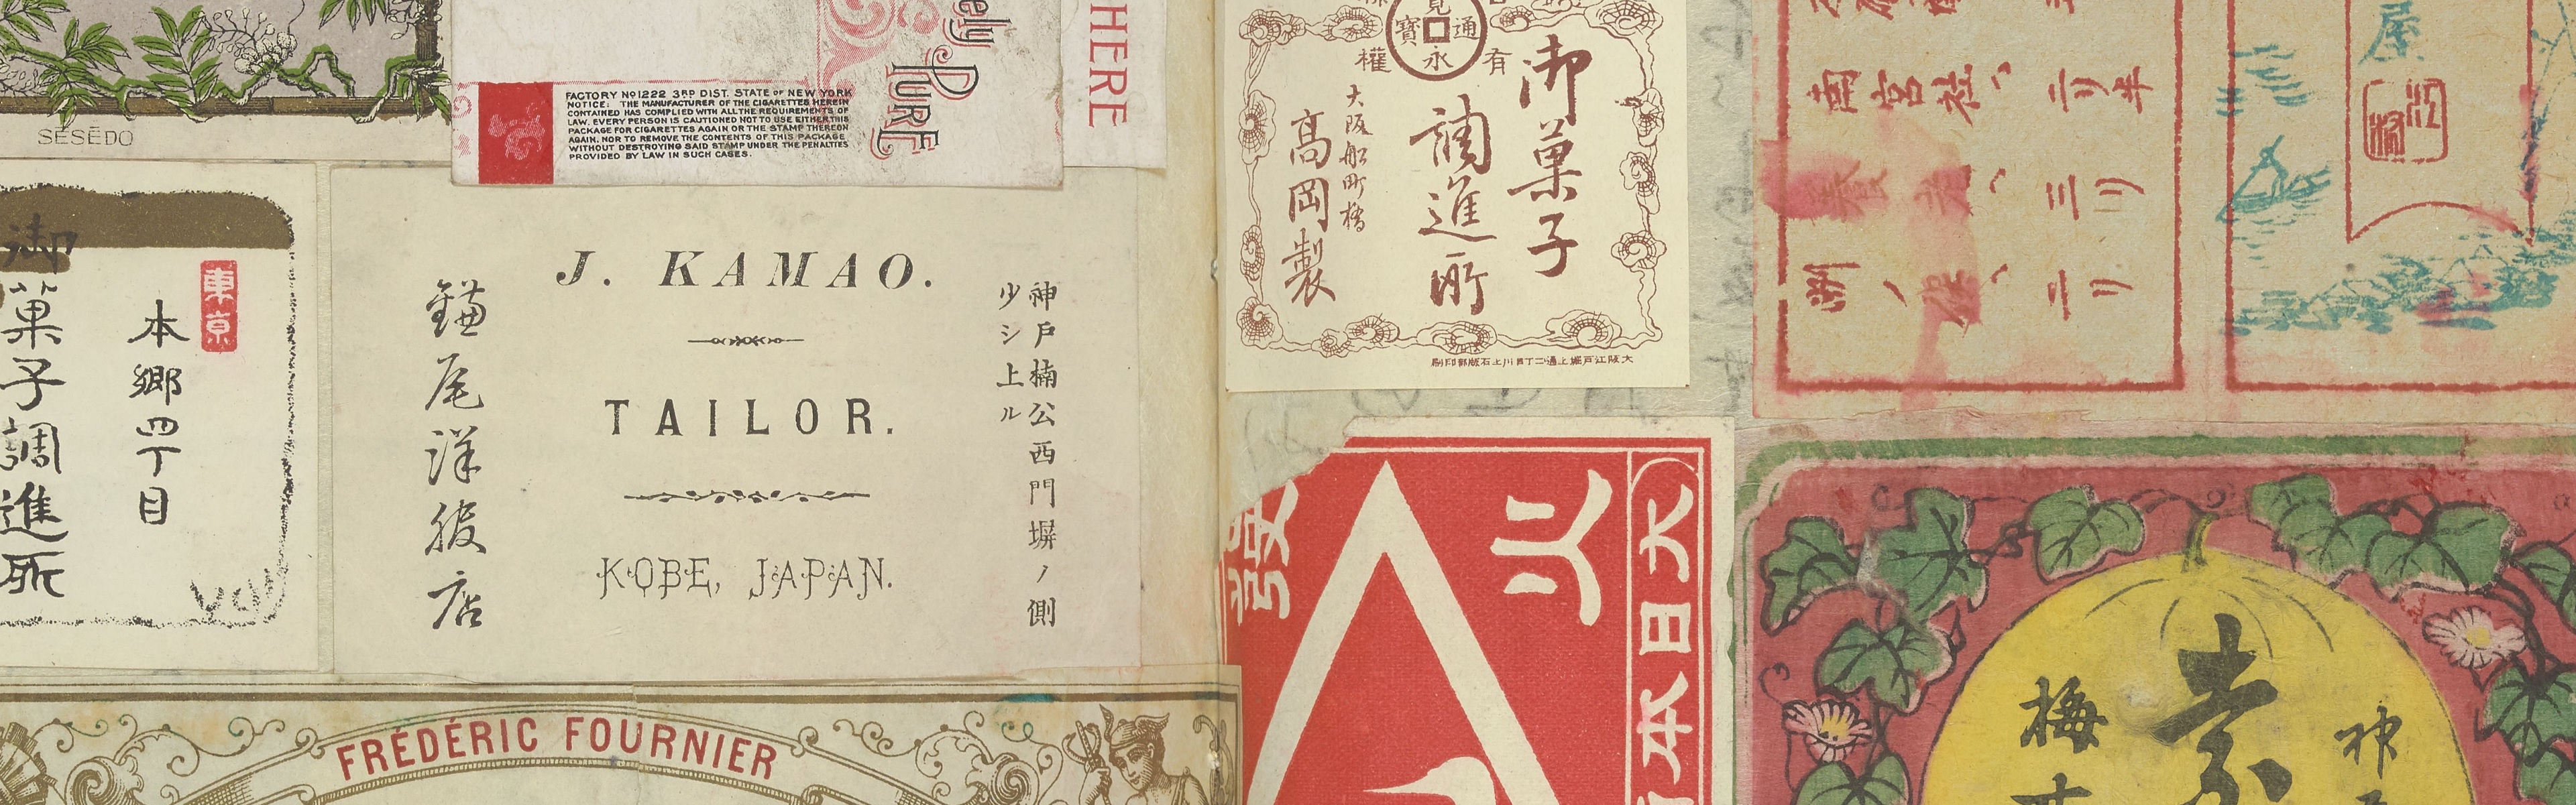 SESĒDO
FACTORY Nº1222 3RD DIST. STATE OF NEW YORK
NOTICE: THE MANUFACTURER OF THE CIGARETTES HEREIN
CONTAINED HAS COMPLIED WITH ALL THE REQUIREMENTS OF
LAW. EVERY PERSON IS CAUTIONED NOT TO USE EITHER THIS
PACKAGE FOR CIGARETTES AGAIN OR THE STAMP THEREON
AGAIN, NOR TO REMOVE THE CONTENTS OF THIS PACKAGE
WITHOUT DESTROYING SAID STAMP UNDER THE PENALTIES
PROVIDED BY LAW IN SUCH CASES.
ely
PURE
HERE
東京
本郷四丁目
御菓子調進所
J. KAMAO.
TAILOR.
KOBE, JAPAN.
神戸楠公西門塀ノ側
少シ上ル
鎌尾洋服店
FRÉDÉRIC FOURNIER
通
寶
永
有
權
御菓子
調進所
大阪船町橋
髙岡製
大阪江戸堀上通二丁目川上石版部印刷
大日本
火
發
屋
南宮社へ
二リ半
三リ
二リ
梅
神